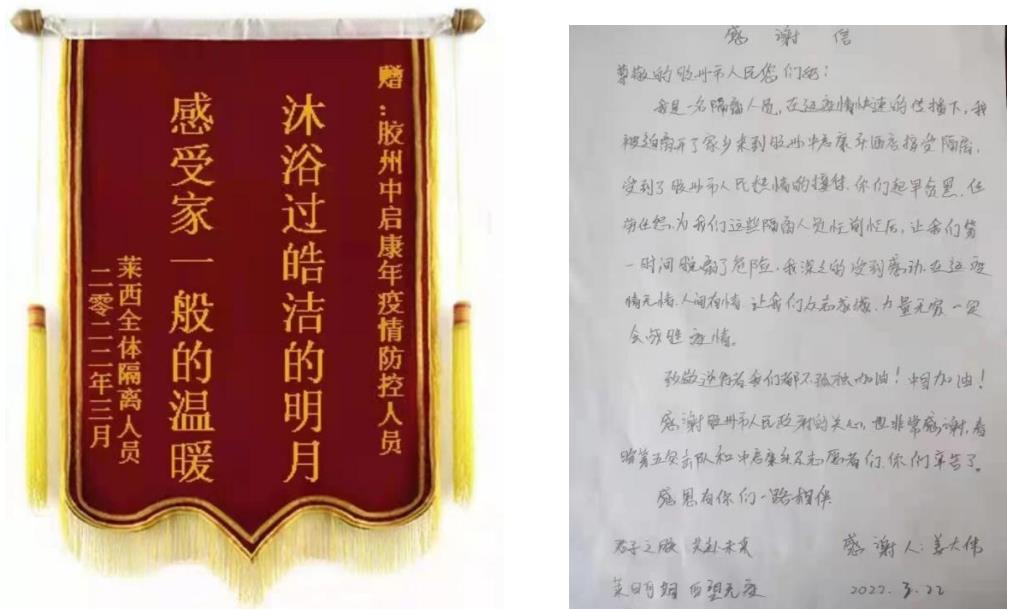 赠:胶州中启康年疫情防控人员
沐浴过皓洁的明月
感受家一般的温暖
莱西全体隔离人员
二零二二年三月
感谢信
尊敬的胶州市人民您们好:
我是一名隔离人员,在这疫情快速的传播下,我
被迫离开了家乡来到胶州中启康年酒店接受隔离,
受到了胶州市人民热情的接待,你们起早贪黑,任
劳任怨,为我们这些隔离人员忙前忙后,让我们第
一时间脱离了危险,我深深的受到感动,在这疫
情无情,人间有情,让我们众志成城,力量无穷一定
会战胜疫情。
致敬逆行者我们都不孤独加油!中国加油!
感谢胶州市人民政府的关心,也非常感谢,
第五突击队和中启康年志愿者们,你们辛苦了。
感恩有你们一路相伴
君子之胶 共赴未来
莱日可期 西望无疫
感谢人:姜大伟
2022.3.22